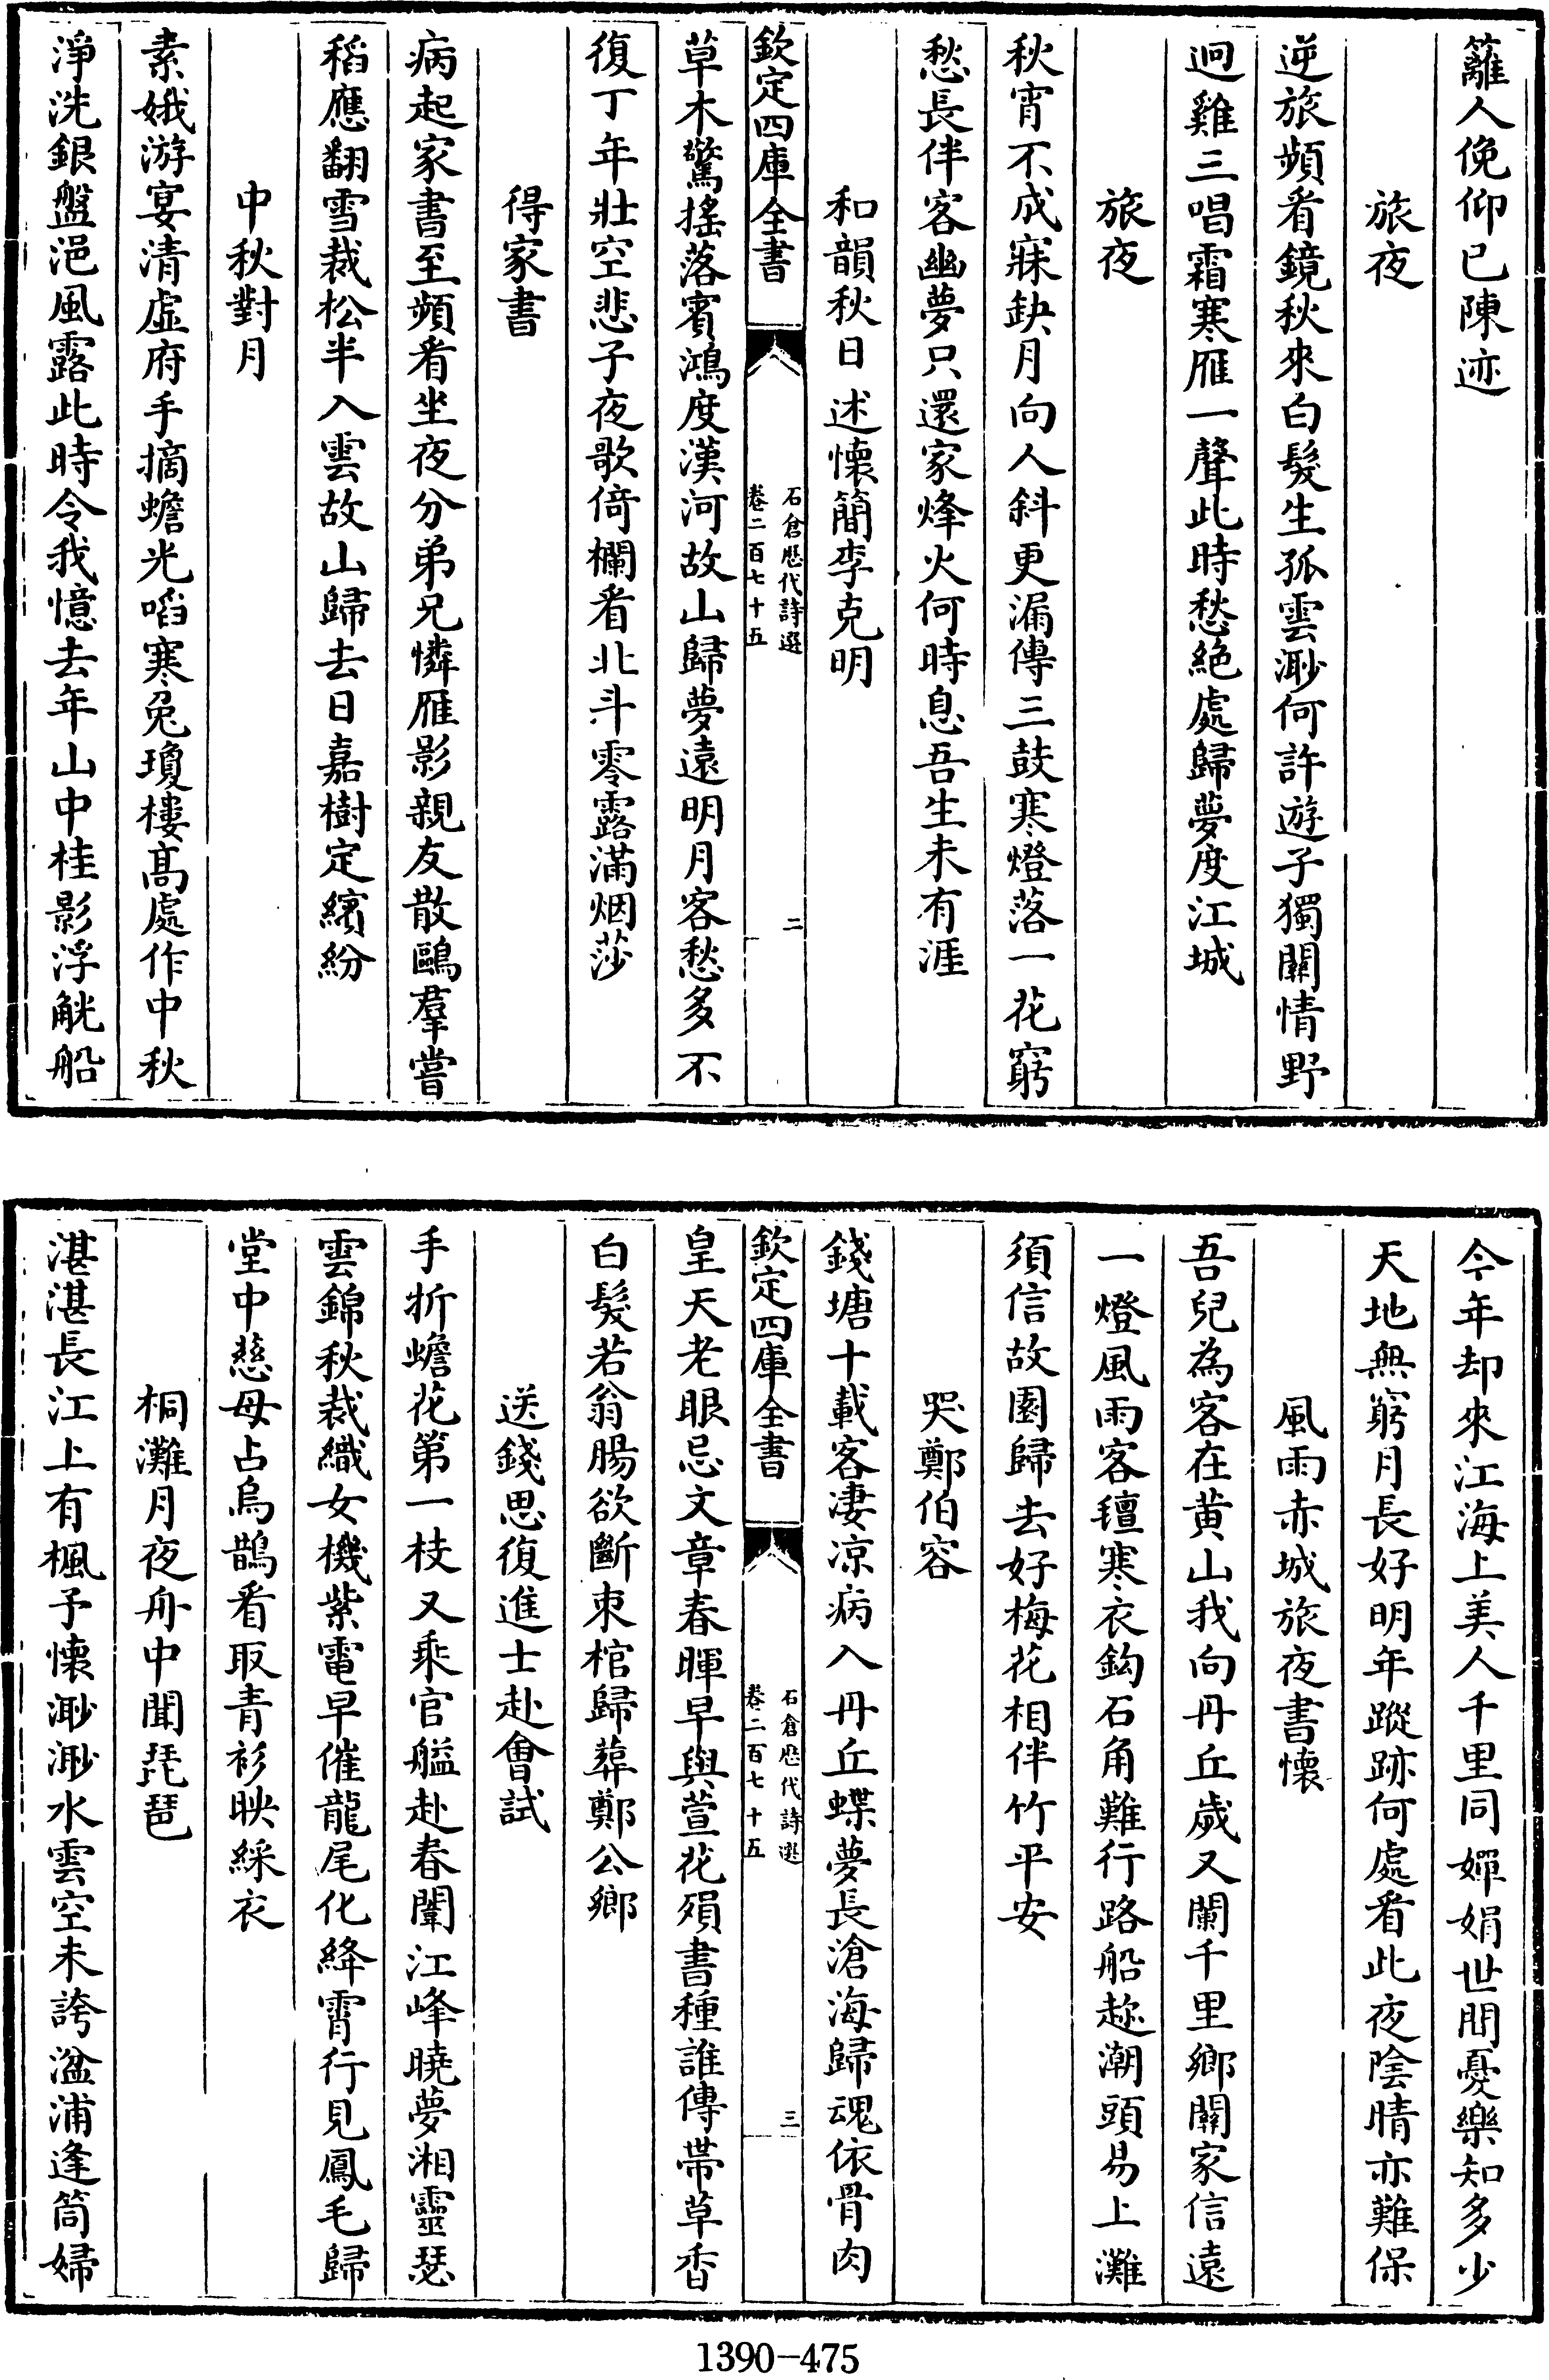 籬人俛仰已陳迹
旅夜
逆旅頻看鏡秋來白髮生孤雲渺何許遊子獨關情野
迥雞三唱霜寒雁一聲此時愁絶處歸夢度江城
旅夜
秋宵不成寐缺月向人斜更漏傳三鼓寒燈落一花窮
愁長伴客幽夢只還家烽火何時息吾生未有涯
和韻秋日述懷簡李克明
欽定四庫全書
石倉歷代詩選
卷二百七十五
二
草木驚搖落賓鴻度漢河故山歸夢遠明月客愁多不
復丁年壯空悲子夜歌倚欄看北斗零露滿烟莎
得家書
病起家書至頻看坐夜分弟兄憐雁影親友散鷗羣嘗
稻應翻雪裁松半入雲故山歸去日嘉樹定繽紛
中秋對月
素娥游宴清虛府手摘蟾光啗寒兔瓊樓高處作中秋
淨洗銀盤浥風露此時令我憶去年山中桂影浮觥船
今年却來江海上美人千里同嬋娟世間憂樂知多少
天地無窮月長好明年蹤跡何處看此夜陰晴亦難保
風雨赤城旅夜書懷
吾兒為客在黄山我向丹丘歲又闌千里鄉關家信遠
一燈風雨客氊寒衣鈎石角難行路船趂潮頭易上灘
須信故園歸去好梅花相伴竹平安
哭鄭伯容
錢塘十載客凄凉病入丹丘蝶夢長滄海歸魂依骨肉
欽定四庫全書
石倉歷代詩選
卷二百七十五
三
皇天老眼忌文章春暉早與萱花殞書種誰傳帶草香
白髮若翁腸欲斷束棺歸葬鄭公鄉
送錢思復進士赴會試
手折蟾花第一枝又乘官艦赴春闈江峰曉夢湘靈瑟
雲錦秋裁織女機紫電早催龍尾化絳霄行見鳳毛歸
堂中慈母占烏鵲看取青衫映綵衣
桐灘月夜舟中聞琵琶
湛湛長江上有楓予懷渺渺水雲空未誇湓浦逢商婦
1390-475